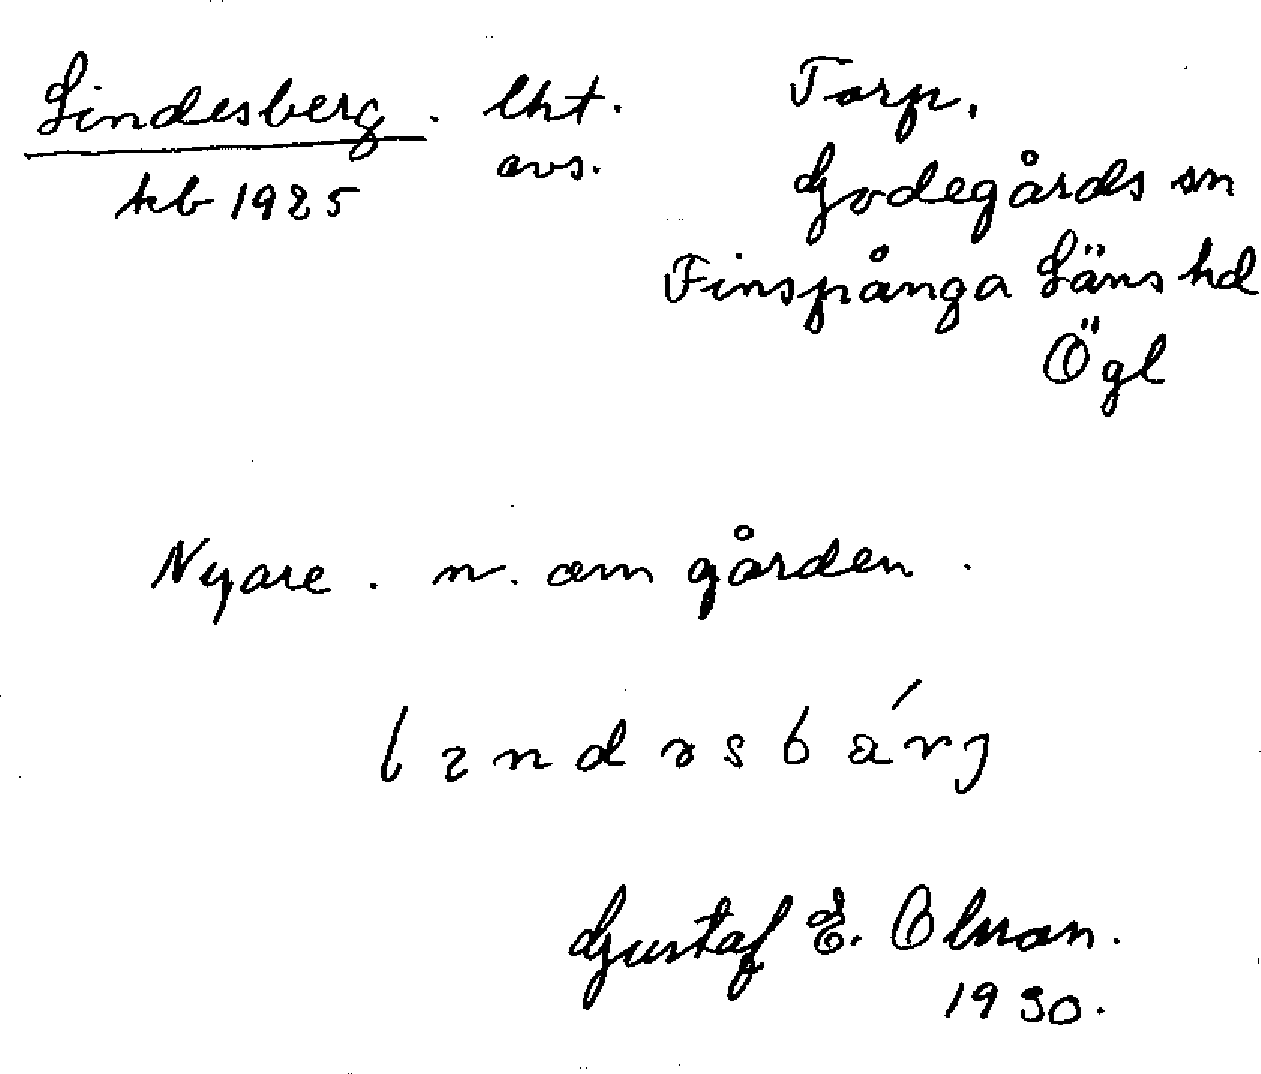 Lindesberg. lht. Torp.
kb 1925 avs. Godegårds sn
Finspånga Läns hd
Ögl
Nyare. n. om gården.
lındəsbárj
Gustaf E. Olsson.
1930.